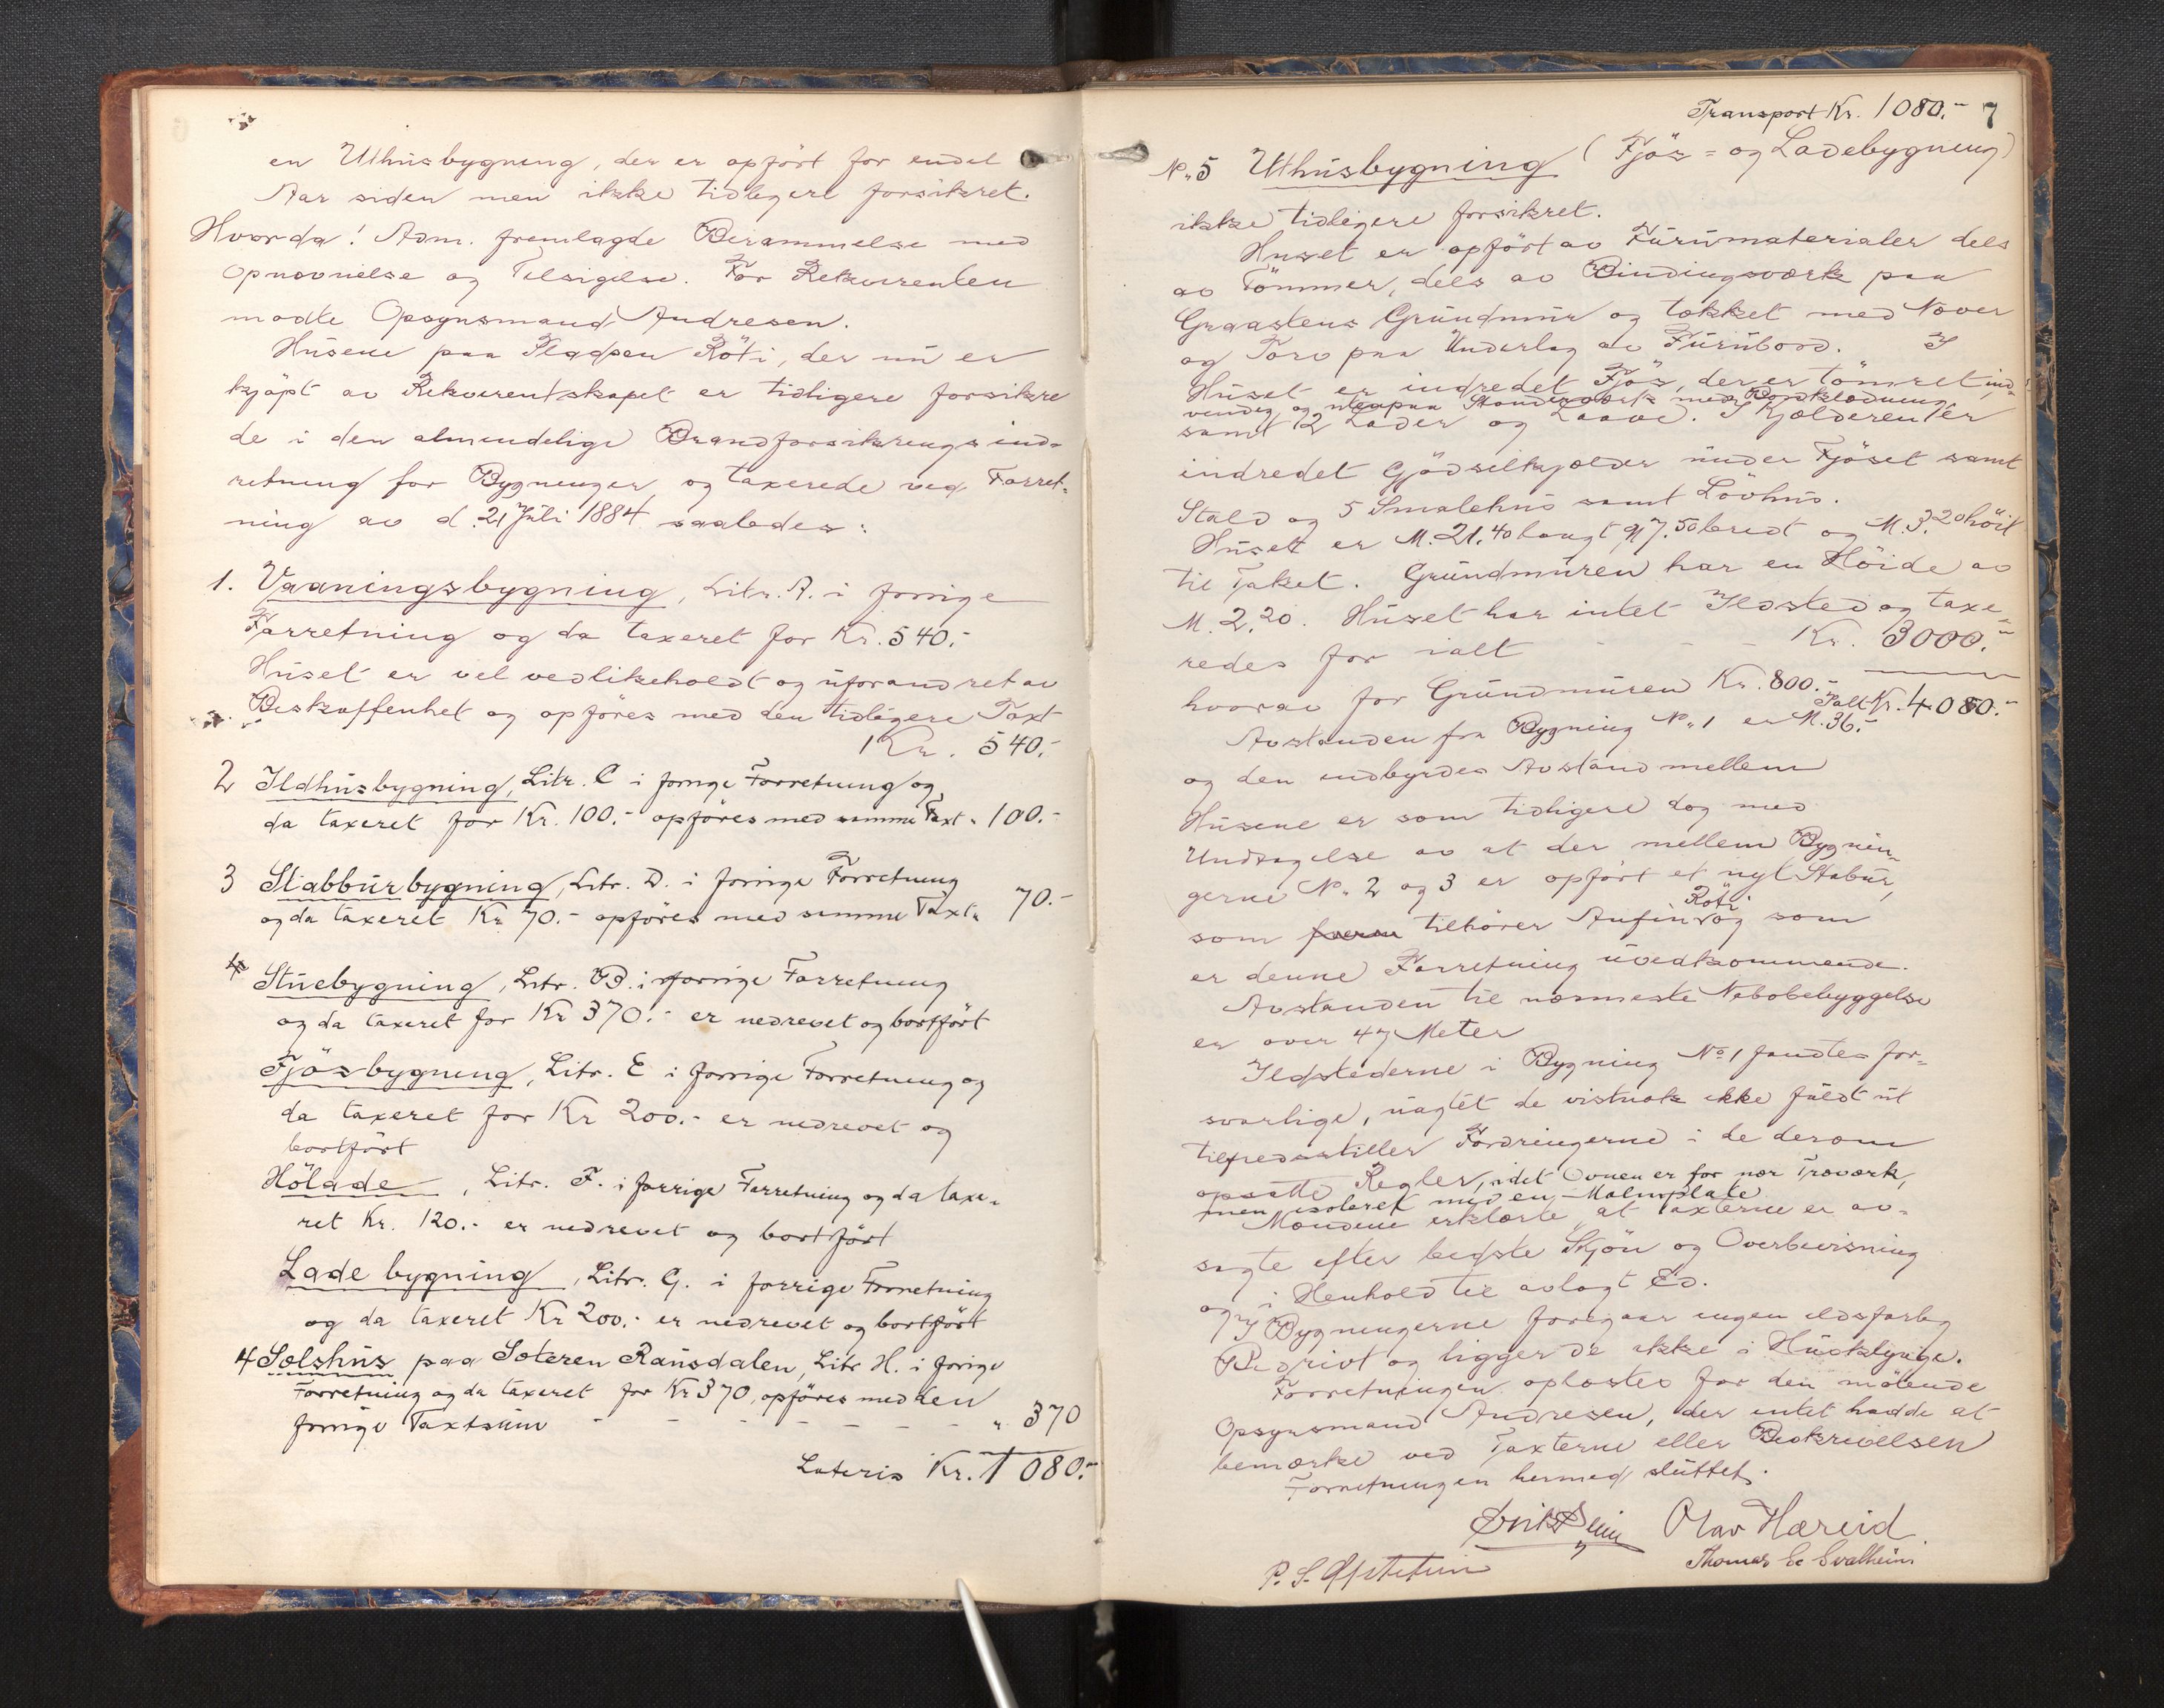 en Uthusbygning, der er opført for endel
Aar siden men ikke tidligere forsikret.
Hvorda! Adm. fremlagde Berammelse med
Opnævnelse og Tilsigelse. For Rekvirenten
mødte Opsynsmand Andresen.
Husene paa Pladsen Röti, der nu er
kjöpt av Rekvirentskapet er tidligere forsikre
de i den almindelige Brandforsikringsind-
retning for Bygninger og taxerede ved Forret-
ning av d. 21 Juli 1884 saaledes:
1. Vaaningsbygning, Litr. A. i forrige
Forretning og da taxeret for Kr. 540.-
Huset er vel vedlikeholdt og uforandret av
Beskaffenhet og opföres med den tidligere Taxt
Kr. 540.-
2 Ildhusbygning, Litr. C i forrige Forretning og
da taxeret for Kr. 100.- opföres med samme Taxt " 100.-
3 Stabburbygning, Litr. D. i forrige Forretning
og da taxeret Kr 70.- opföres med samme Taxt " 70.-
4 Stuebygning, Litr. B. i forrige Forretning
og da taxeret for Kr 370.- er nedrevet og bortfört
Fjösbygning, Litr. E i forrige Forretning og
da taxeret for Kr 200.- er nedrevet og
bortfört
Hölade, Litr. F. i forrige Forretning og da taxe-
ret Kr. 120.- er nedrevet og bortfört
Ladebygning, Litr. G. i forrige Forretning
og da taxeret Kr 200.- er nedrevet og bortfört
4 Sælshus paa Sæteren Rausdalen, Litr H. i forige
Forretning og da taxeret for Kr 370, opföres med den
forrige Taxtsum - - - - - - - " 370
Lateris Kr. 1080.-
Transport Kr. 1080.- 7
No. 5 Uthusbygning (Fjös- og Ladebygning)
ikke tidligere forsikret.
Huset er opfört av Furumaterialer dels
av Tömmer, dels av Bindingsværk paa
Graastens Grundmur og tækket med Næver
og Torv paa Underlag av Furubord. I
Huset er indredet Fjös, der er tömret, ind-
vendig og utenpaa Standerværk med Bordklædning
samt 2 Lader og Laave. I Kjælderen er
indredet Gjödselkjælder under Fjöset samt
Stald og 5 Smalehus samt Lövhus.
Huset er M. 21.40 langt, 7.50 bredt og M. 3.20 höit
til Taket. Grundmuren har en Höide av
M. 2.20. Huset har intet Ildsted og taxe-
redes for ialt - - - Kr. 3000.-
hvorav for Grundmuren Kr. 800.-
Ialt Kr. 4080.-
Avstanden fra Bygning No. 1 er M. 36.-
og den indbyrdes Avstand mellem
Husene er som tidligere dog med
Undtagelse av at der mellem Bygnin-
gerne No. 2 og 3 er opfört et nyt Stabur,
Röti
som tilhörer Anfin og som
er denne Forretning uvedkommende.
Avstanden til nærmeste Nabobebyggelse
er over 47 Meter
Ildstederne i Bygning No 1 fandtes for-
svarlige, uagtet de vistnok ikke fuldt ut
tilfredsstiller Fordringerne i de derom
opsatte Regler, idet Ovnen er for nær Træværk,
men isoleret med en Malmplate.
Mændene erklærte at Taxterne er av-
sagte efter bedste Skjön og Overbevisning
og i Henhold til avlagt Ed.
I Bygningerne foregaar ingen ildsfarlig
Bedrivt og ligger de ikke i Husklynge.
Forretningen oplæstes for den mötende
Opsynsmand Andresen, der intet hadde at
bemærke ved Taxterne eller Beskrivelsen
Forretningen hermed sluttet.
Olav Hæreid
P. S. Opsteteim
Thomas E. Svalheim